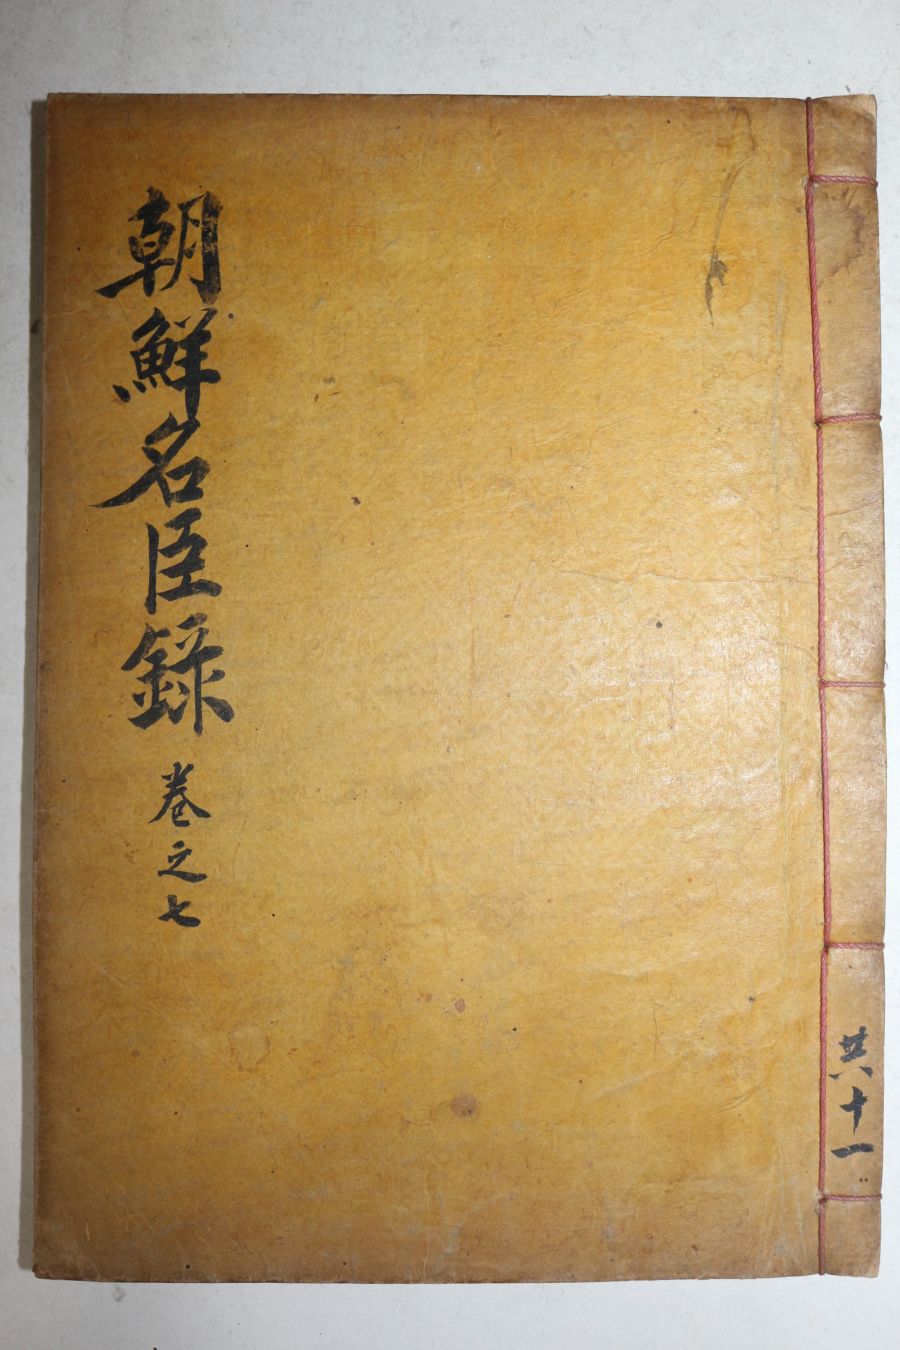 共十一
朝鮮名臣錄 卷之七